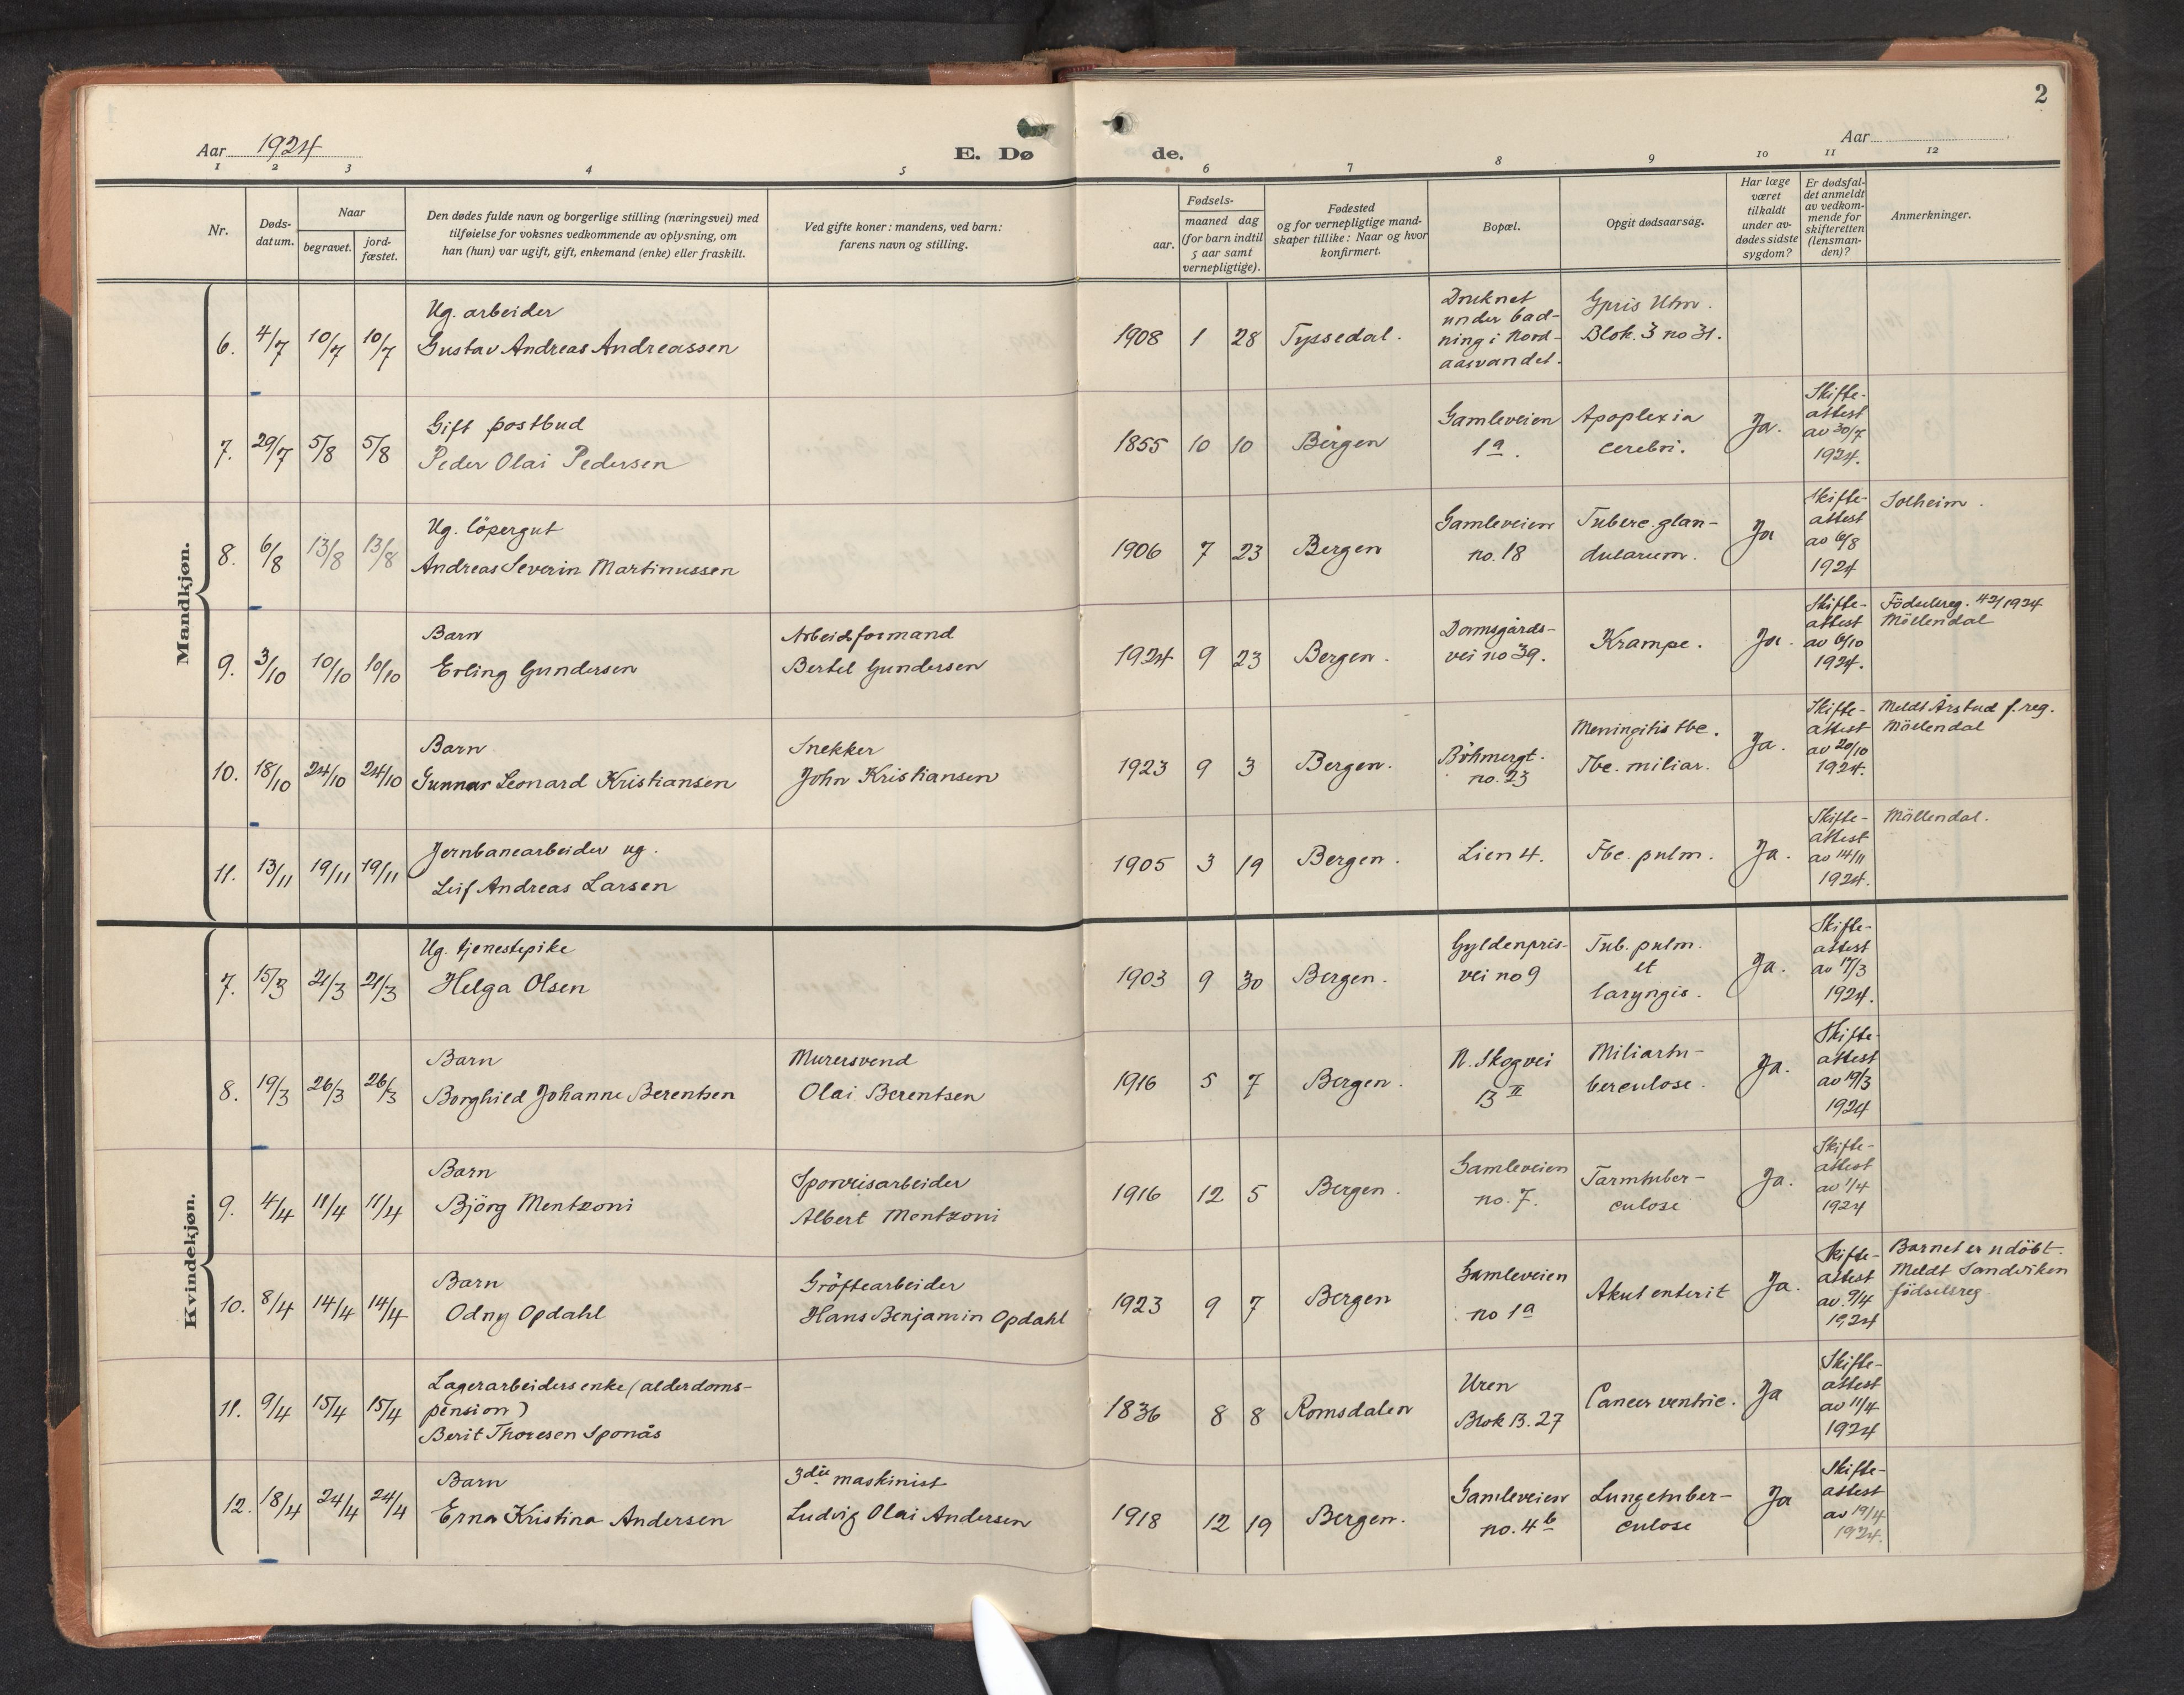 2
Aar 1924
E. Dø
de.
Aar
1 2 3 4 5 6 7 8 9 10 11 12
Nr.
Døds-
datum.
Naar
begravet.
jord-
fæstet.
Den dødes fulde navn og borgerlige stilling (næringsvei) med
tilføielse for voksnes vedkommende av oplysning, om
han (hun) var ugift, gift, enkemand (enke) eller fraskilt.
Ved gifte koner: mandens, ved barn:
farens navn og stilling.
Fødsels-
aar.
maaned dag
(for barn indtil
5 aar samt
vernepligtige).
Fødested
og for vernepligtige mand-
skaper tillike: Naar og hvor
konfirmert.
Bopæl.
Opgit dødsaarsag.
Har læge
været
tilkaldt
under av-
dødes sidste
sygdom?
Er dødsfal-
det anmeldt
av vedkom-
mende for
skifteretten
(lensman-
den)?
Anmerkninger.
Mandkjøn.
6. 4/7 10/7 10/7
Ug. arbeider
Gustav Andreas Andreassen
1908 1 28 Tyssedal.
Druknet
under bad-
ning i Nord-
aasvandet.
Gpris Utm.
Blok. 3 no 31.
7. 29/7 5/8 5/8
Gift postbud
Peder Olai Pedersen
1855 10 10 Bergen
Gamleveien
1a.
Apoplexia
cerebri.
Ja.
Skifte-
attest
av 30/7
1924.
8. 6/8 13/8 13/8
Ug. löpergut
Andreas Severin Martinussen
1906 7 23 Bergen
Gamleveien
no. 18
Tuberc. glan-
dularum.
Ja
Skifte-
attest
av 6/8
1924
Solheim.
9. 3/10 10/10 10/10
Barn
Erling Gundersen
Arbeidsformand
Bertel Gundersen
1924 9 23 Bergen.
Damsgårds-
vei no 39.
Krampe.
Ja.
Skifte-
attest
av 6/10
1924.
Födselsreg. 42/1924
Möllendal
10. 18/10 24/10 24/10
Barn
Gunnar Leonard Kristiansen
Snekker
John Kristiansen
1923 9 3 Bergen.
Böhmergt.
no. 23
Meningitis tbc.
Tbc. miliar.
Ja.
Skifte-
attest
av 20/10
1924.
Meldt Årstad f. reg.
Möllendal
11. 13/11 19/11 19/11
Jernbanearbeider ug.
Leif Andreas Larsen
1905 3 19 Bergen.
Lien 4.
Tbc. pulm.
Ja.
Skifte-
attest
av 14/11
1924.
Möllendal.
Kvindekjøn.
7. 15/3 21/3 21/3
Ug. tjenestepike
Helga Olsen
1903 9 30 Bergen.
Gyldenpris-
vei no 9
Tub. pulm.
et
laryngis.
Ja.
Skifte-
attest
av 17/3
1924.
8. 19/3 26/3 26/3
Barn
Borghild Johanne Berentsen
Murersvend
Olai Berentsen
1916 5 7 Bergen.
N. Skogvei
13 II
Miliartu-
berculose.
Ja.
Skifte-
attest
av 19/3
1924
9. 4/4 11/4 11/4
Barn
Björg Mentzoni
Sporveisarbeider
Albert Mentzoni
1916 12 5 Bergen.
Gamleveien
no. 7.
Tarmtuber-
culose
Ja.
Skifte-
attest
1924
10. 8/4 14/4 14/4
Barn
Odny Opdahl
Gröftearbeider
Hans Benjamin Opdahl
1923 9 7 Bergen
Gamleveien
no 1a
Akut enterit
Ja.
Skifte-
attest
av 9/4
1924
Barnet er udöbt.
Meldt Sandviken
födselsreg.
11. 9/4 15/4 15/4
Lagerarbeiders enke (alderdoms-
pension)
Berit Thoresen Sponås
1836 8 8 Romsdalen
Uren
Blok B. 27
Cancer ventric.
Ja
Skifte-
attest
av 11/4
1924
12. 18/4 24/4 24/4
Barn
Erna Kristina Andersen
3die maskinist
Ludvig Olai Andersen
1918 12 19 Bergen.
Gamleveien
no. 4b
Lungetuber-
culose
Ja
Skifte-
attest
av 19/4
1924.